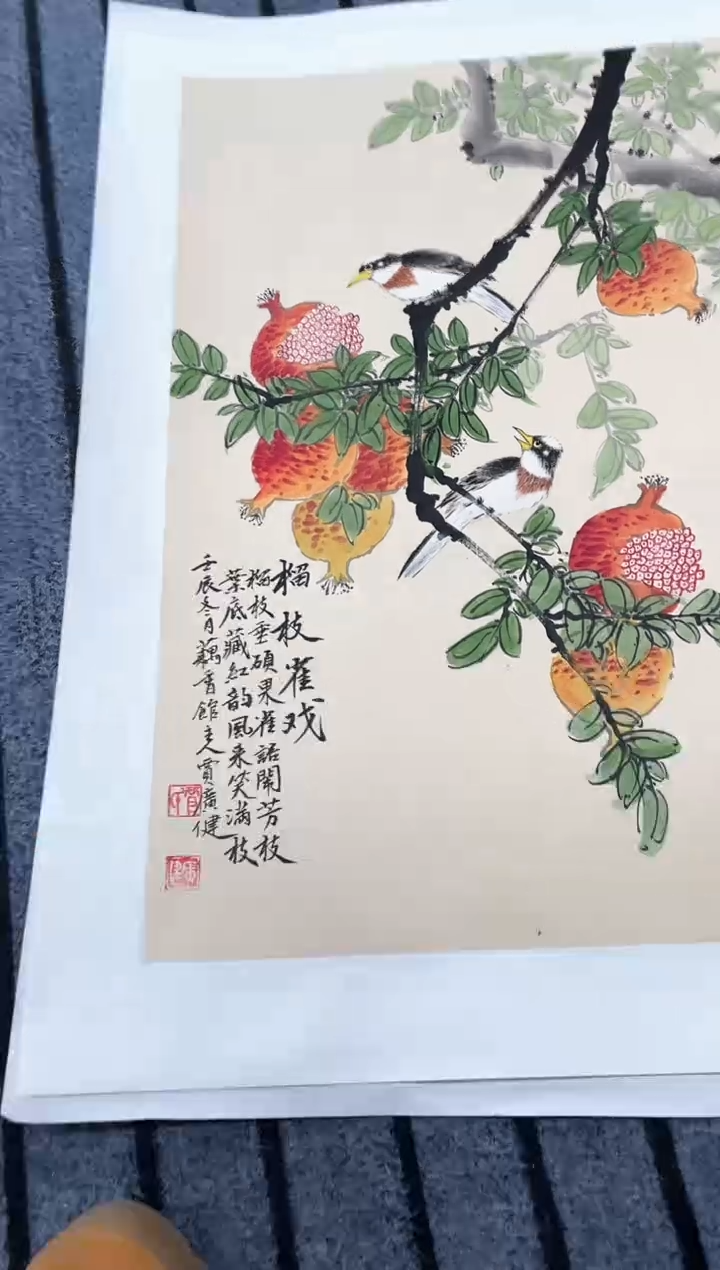 榴枝雀戏
榴枝垂硕果雀語鬧芳枝
葉底藏红韵風来笑满枝
壬辰冬月藕香館主人賈廣健